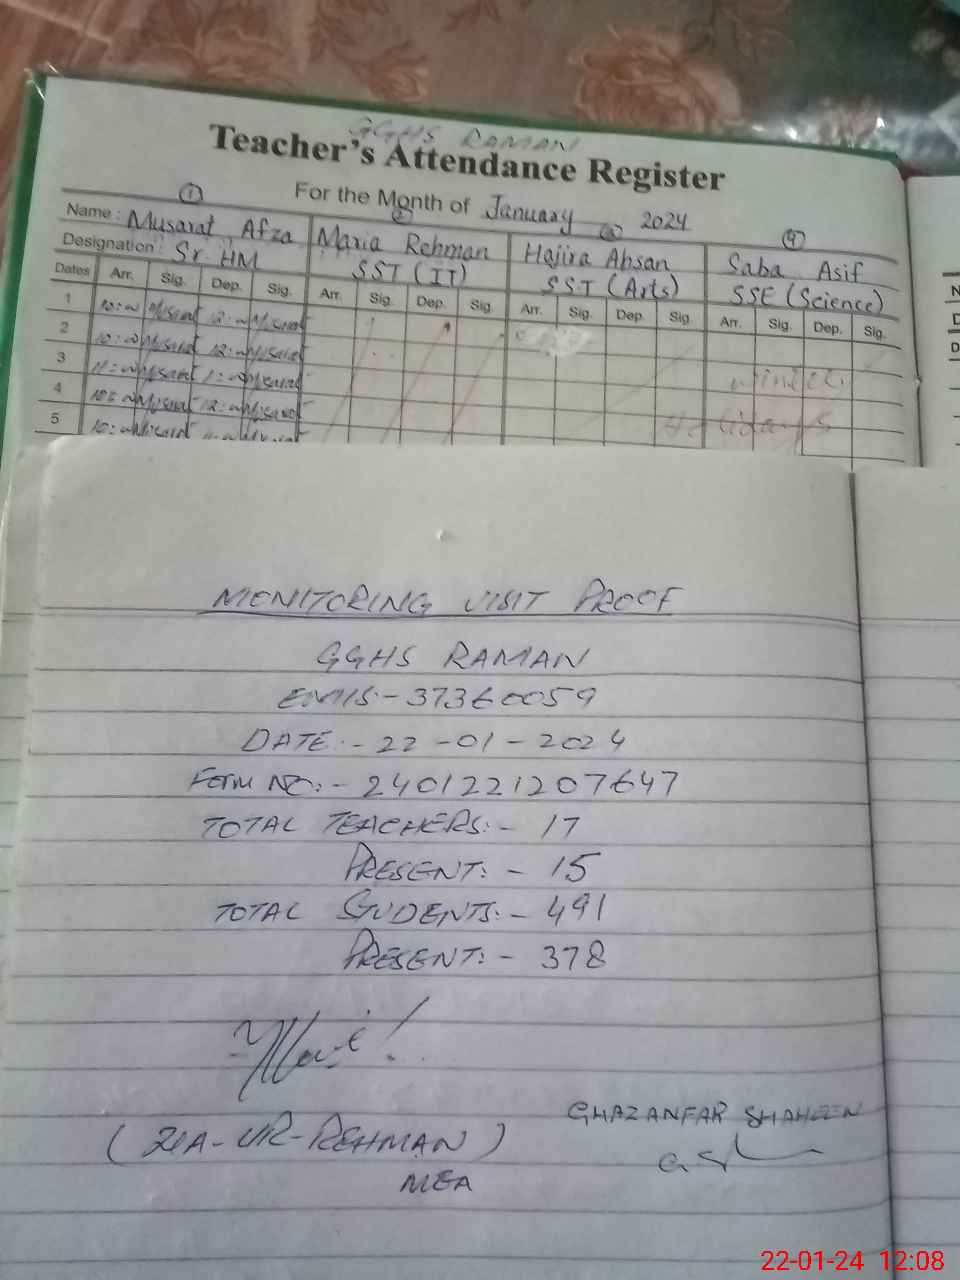 GGHS RAMAN
Teacher's Attendance Register
For the Month of January 2024
① ② ③ ④
Name: Musarat Afza Maria Rehman Hajira Ahsan Saba Asif
Designation: Sr. HM SST (IT) SST (Arts) SSE (Science)
Dates Arr. Sig. Dep. Sig. Arr. Sig. Dep. Sig. Arr. Sig. Dep. Sig. Arr. Sig. Dep. Sig.
1 10:00 Musarat 12:00 Musarat
2 10:00 Musarat 12:00 Musarat
3 11:00 Musarat 1:00 Musarat winter
4 10:00 Musarat 12:00 Musarat
5 10:00 Musarat Holidays
N
D
D
MONITORING VISIT PROOF
GGHS RAMAN
EMIS:- 37360059
DATE:- 22-01-2024
FORM NO:- 2401221207647
TOTAL TEACHERS:- 17
PRESENT:- 15
TOTAL STUDENTS:- 491
PRESENT:- 378
(ZIA-UR-REHMAN)
MEA
GHAZANFAR SHAHEEN
22-01-24 12:08